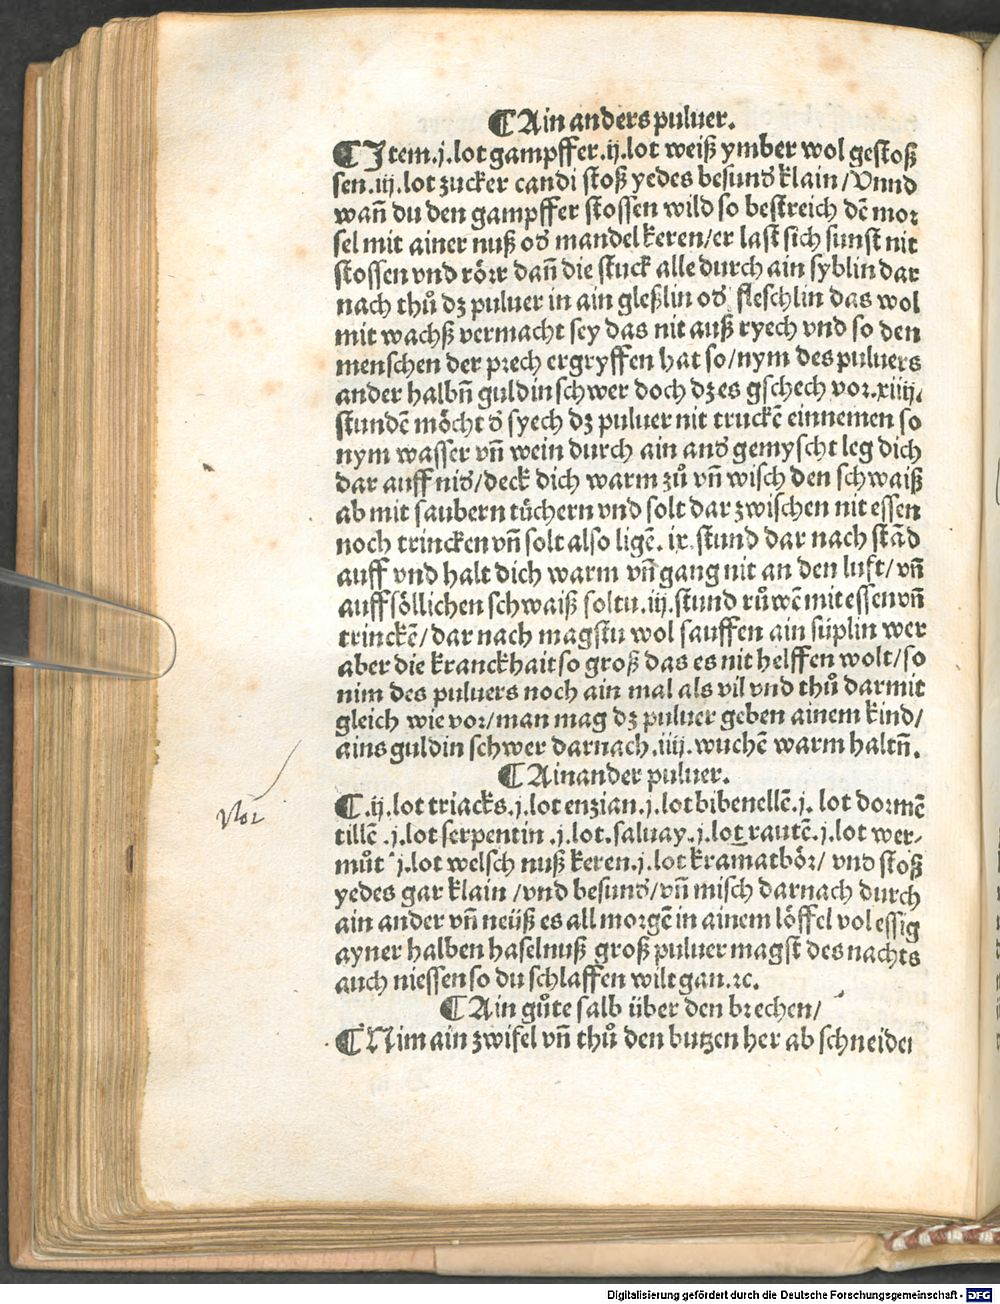 ¶ Ain anders puluer.
¶ Item .j. lot gampffer .ij. lot weiß ymber wol gestoß
sen .iij. lot zucker candi stoß yedes besund̕s klain / Vnnd
wañ du den gampffer stossen wild so bestreich dē mor
sel mit ainer nuß od̕ mandel keren / er last sich sunst nit
stossen vnd rörr dañ die stuck alle durch ain syblin dar
nach thů dz puluer in ain gleßlin od̕ fleschlin das wol
mit wachß vermacht sey das nit auß ryech vnd so den
menschen der prech ergryffen hat so / nym des puluers
ander halbñ guldin schwer doch dz es gschech vor .xiiij.
stundē möcht d̕ syech dz puluer nit truckē einnemen so
nym wasser vñ wein durch ain and̕ gemyscht leg dich
dar auff nid̕ / deck dich warm zů vñ wisch den schwaiß
ab mit saubern tüchern vnd solt dar zwischen nit essen
noch trincken vñ solt also ligē .ix. stund dar nach stād
auff vnd halt dich warm vñ gang nit an den luft / vñ
auff söllichen schwaiß soltu .iij. stund růwē mit essen vñ
trinckē / dar nach magstu wol sauffen ain süplin wer
aber die kranckhait so groß das es nit helffen wolt / so
nim des puluers noch ain mal als vil vnd thů darmit
gleich wie vor / man mag dz puluer geben ainem kind /
ains guldin schwer darnach .iiij. wuchē warm haltñ.
¶ Ain ander puluer.
¶ .ij. lot triacks .j. lot enzian .j. lot bibenellē .j. lot dormē
tillē .j. lot serpentin .j. lot saluay .j. lot rautē .j. lot wer-
můt j. lot welsch nuß keren .j. lot kramatbör / vnd stoß
yedes gar klain / vnd besund̕ / vñ misch darnach durch
ain ander vñ neüß es all morgē in ainem löffel vol essig
ayner halben haselnuß groß puluer magst des nachts
auch niessen so du schlaffen wilt gan. ꝛc.
¶ Ain gůte salb über den brechen /
¶ Nim ain zwifel vñ thů den butzen her ab schneidet
Nor
Digitalisierung gefördert durch die Deutsche Forschungsgemeinschaft - DFG